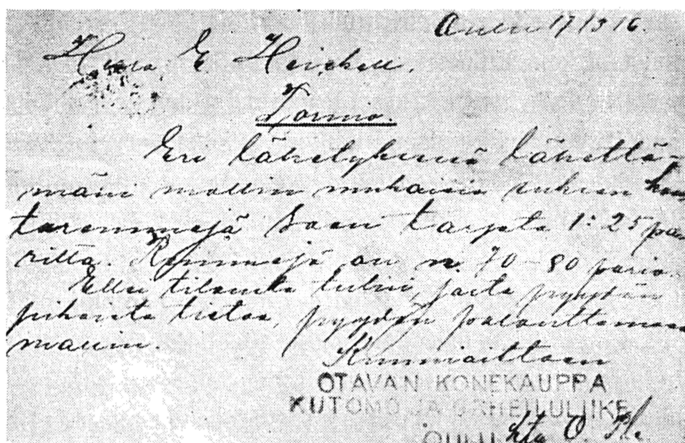 Oulu 17/5 16.
Herra E. Heickell.
Tornio.
Eri lähetyksenä lähettä-
mäni mallin mukaisia sukien
teränniejä saan tarjota 1:25 pa-
rilta. on n. 70-80 paria.
Ellei tilausta tulisi, josta pyydän
pikaista tietoa, pyydän palauttamaan
mallin.
Kunnioittaen
OTAVAN KONEKAUPPA
KUTOMO JA URHEILULIIKE
OULU